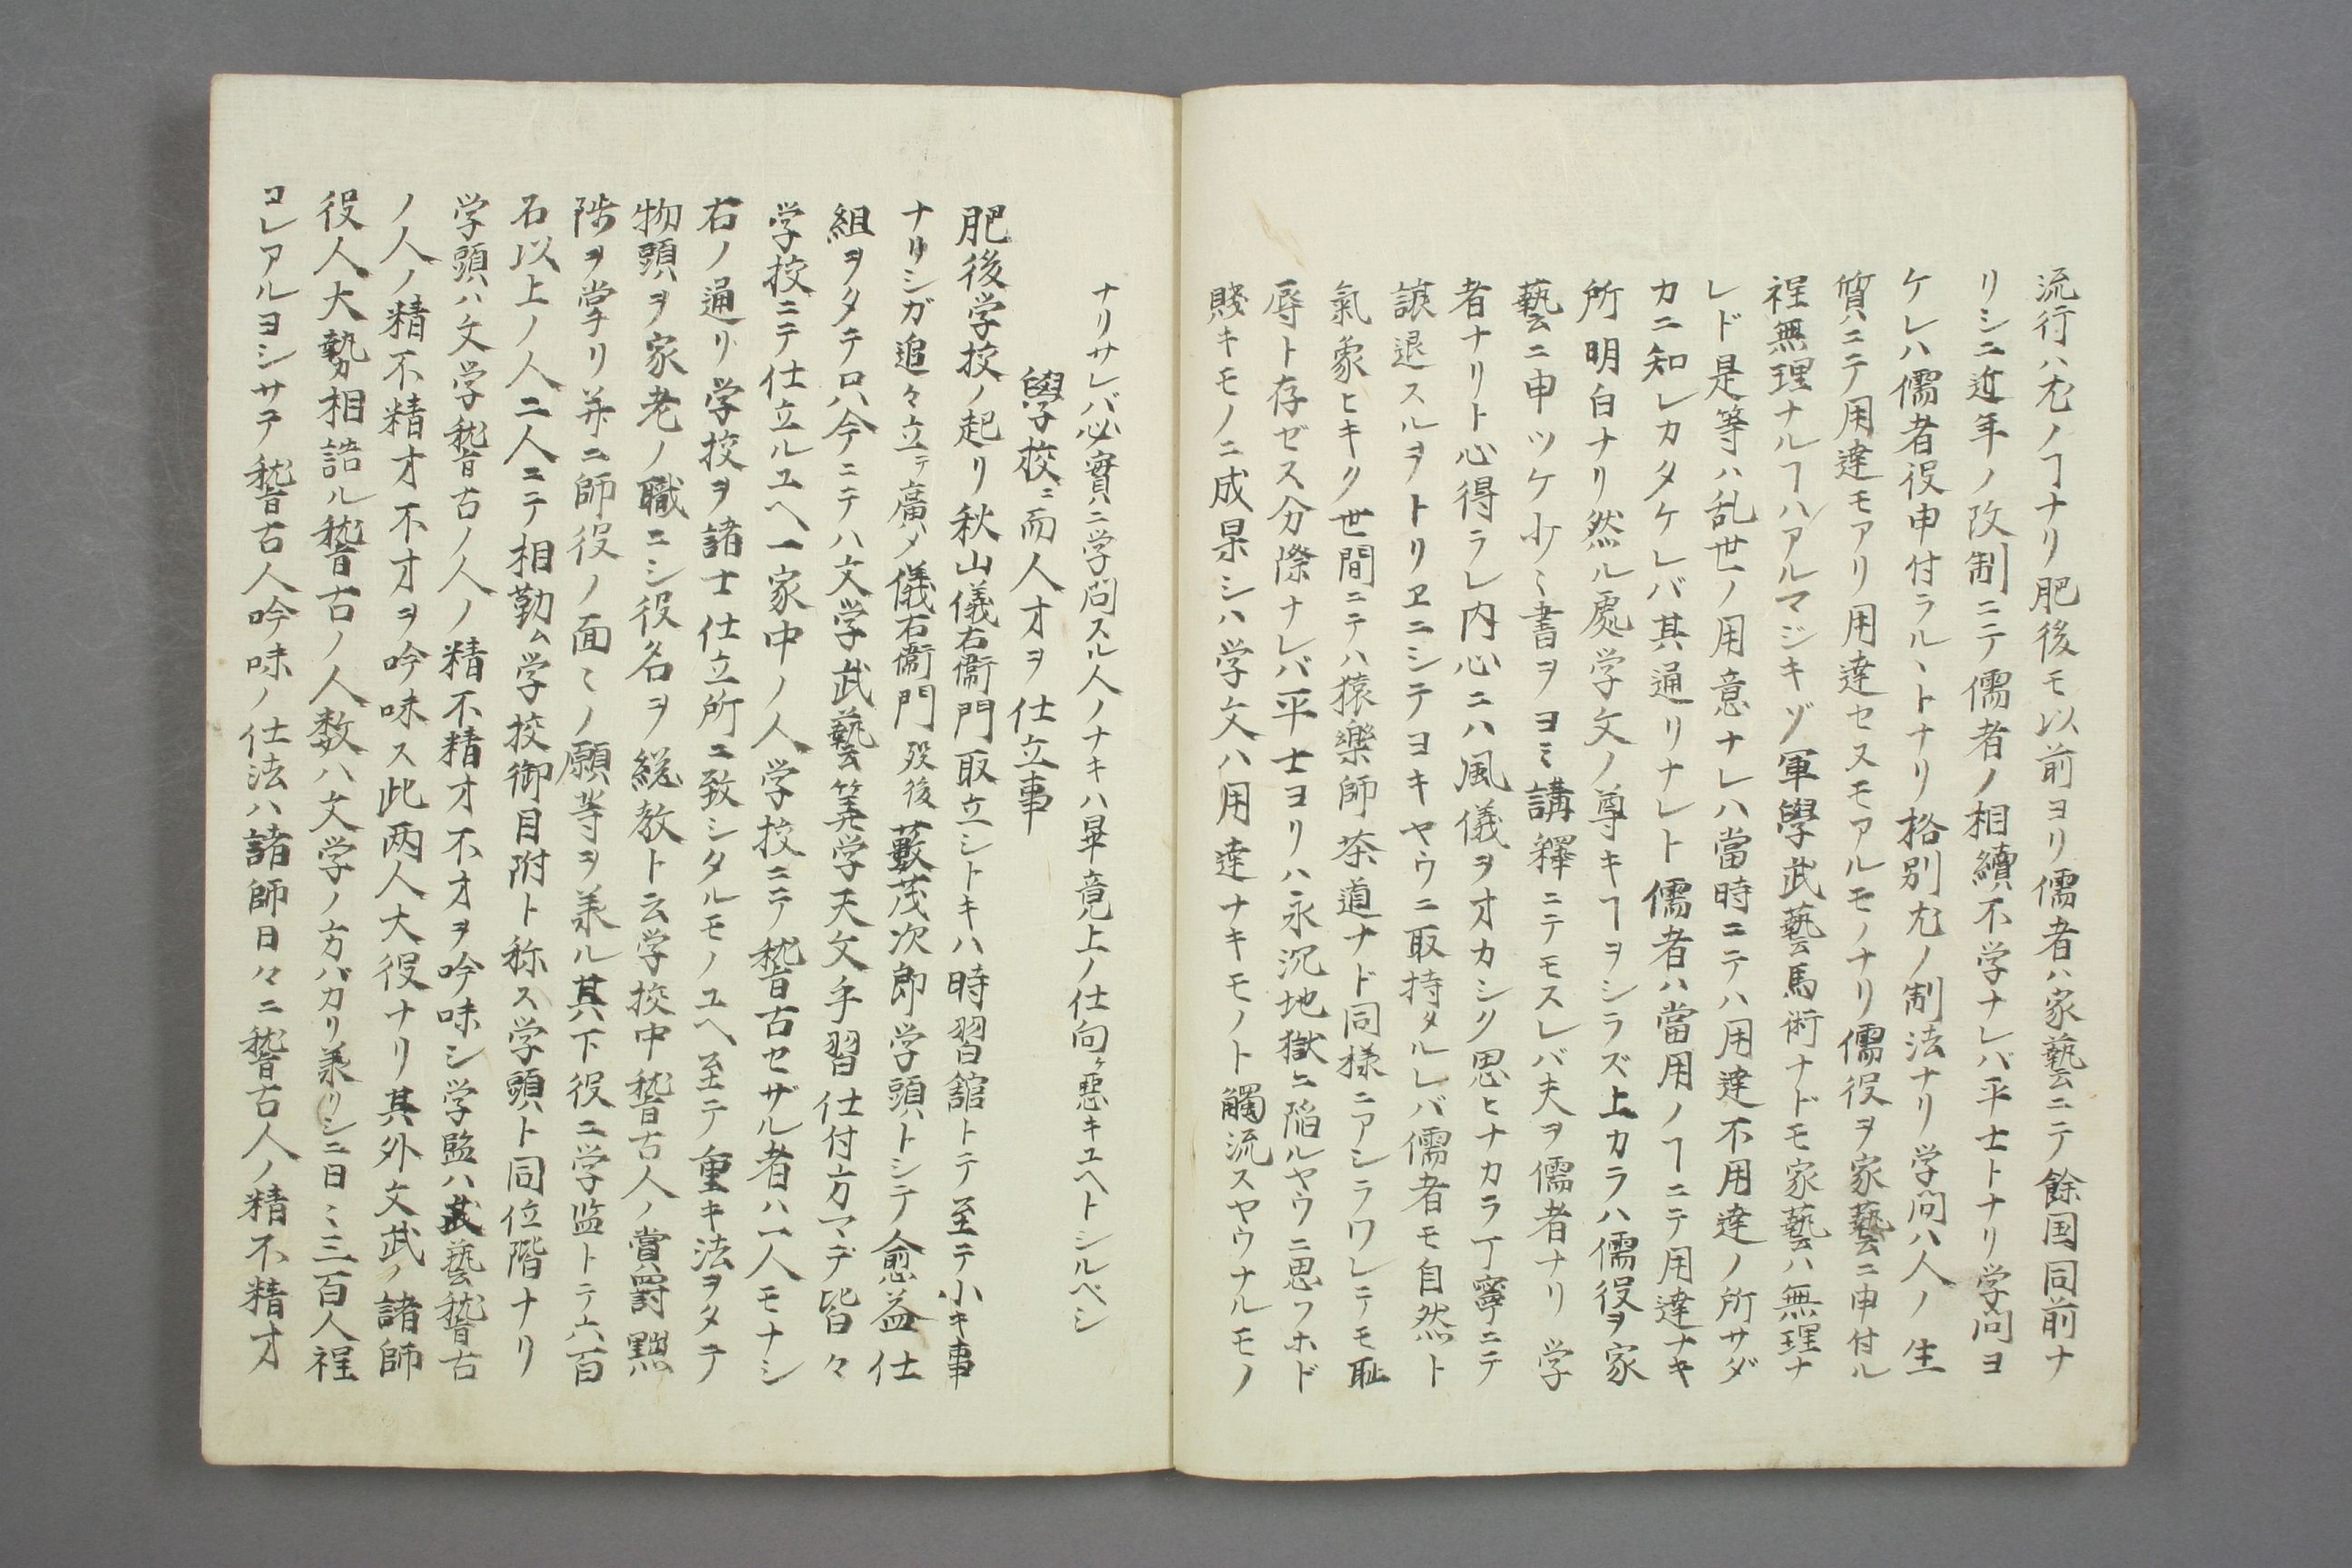 流行ハ尤ノヿナリ肥後モ以前ヨリ儒者ハ家藝ニテ餘国同前ナ
リシニ近年ノ改制ニテ儒者ノ相續不学ナレバ平士トナリ学問ヨ
ケレハ儒者役申付ラルヽトナリ格別尤ノ制法ナリ学問ハ人ノ生
質ニテ用達モアリ用達セスモアルモノナリ儒役ヲ家藝ニ申付ル
程無理ナルヿハアルマジキゾ軍學武藝馬術ナドモ家藝ハ無理ナ
レド是等ハ乱世ノ用意ナレハ當時ニテハ用達不用達ノ所サダ
カニ知レカタケレバ其通リナレト儒者ハ當用ノヿニテ用達ナキ
所明白ナリ然ル處学文ノ尊キヿヲシラズ上カラハ儒役ヲ家
藝ニ申ツケ少〻書ヲヨミ講釋ニテモスレバ夫ヲ儒者ナリ学
者ナリト心得ラレ内心ニハ風儀ヲオカシク思ヒナカラ丁寧ニテ
謙退スルヲトリヱニシテヨキヤウニ取持タルレバ儒者モ自然ト
氣象ヒキク世間ニテハ猿樂師茶道ナド同様ニアシラワレテモ耻
辱ト存ゼス分際ナレバ平士ヨリハ永沉地獄ニ陷ルヤウニ思フホド
賤キモノニ成果シハ学文ハ用達ナキモノト觸流スヤウナルモノ
ナリサレバ必實ニ学問スル人ノナキハ畢竟上ノ仕向ケ惡キユヘトシルベシ
學校ニ而人才ヲ仕立事
肥後学校ノ起リ秋山儀右衞門取立シトキハ時習舘トテ至テ小キ事
ナリシガ追々立テ廣メ儀右衞門歿後藪茂次郎学頭トシテ愈益仕
組ヲタテ只今ニテハ文学武藝筭学天文手習仕付方マデ皆々
学校ニテ仕立ルユヘ一家中ノ人学校ニテ稽古セザル者ハ一人モナシ
右ノ通リ学校ヲ諸士仕立所ニ致シタルモノユヘ至テ重キ法ヲタテ
物頭ヲ家老ノ職ニシ役名ヲ総教ト云学校中稽古人ノ賞罰黜
陟ヲ掌リ并ニ師役ノ面〻ノ願等ヲ兼ル其下役ニ学监トテ六百
石以上ノ人二人ニテ相勤ム学校御目附ト称ス学頭ト同位階ナリ
学頭ハ文学稽古ノ人ノ精不精才不才ヲ吟味シ学監ハ武藝稽古
ノ人ノ精不精才不才ヲ吟味ス此两人大役ナリ其外文武ノ諸師
役人大勢相詰ル稽古ノ人数ハ文学ノ方バカリ兼リシニ日〻三百人程
コレアルヨシサテ稽古人吟味ノ仕法ハ諸師日々ニ稽古人ノ精不精才